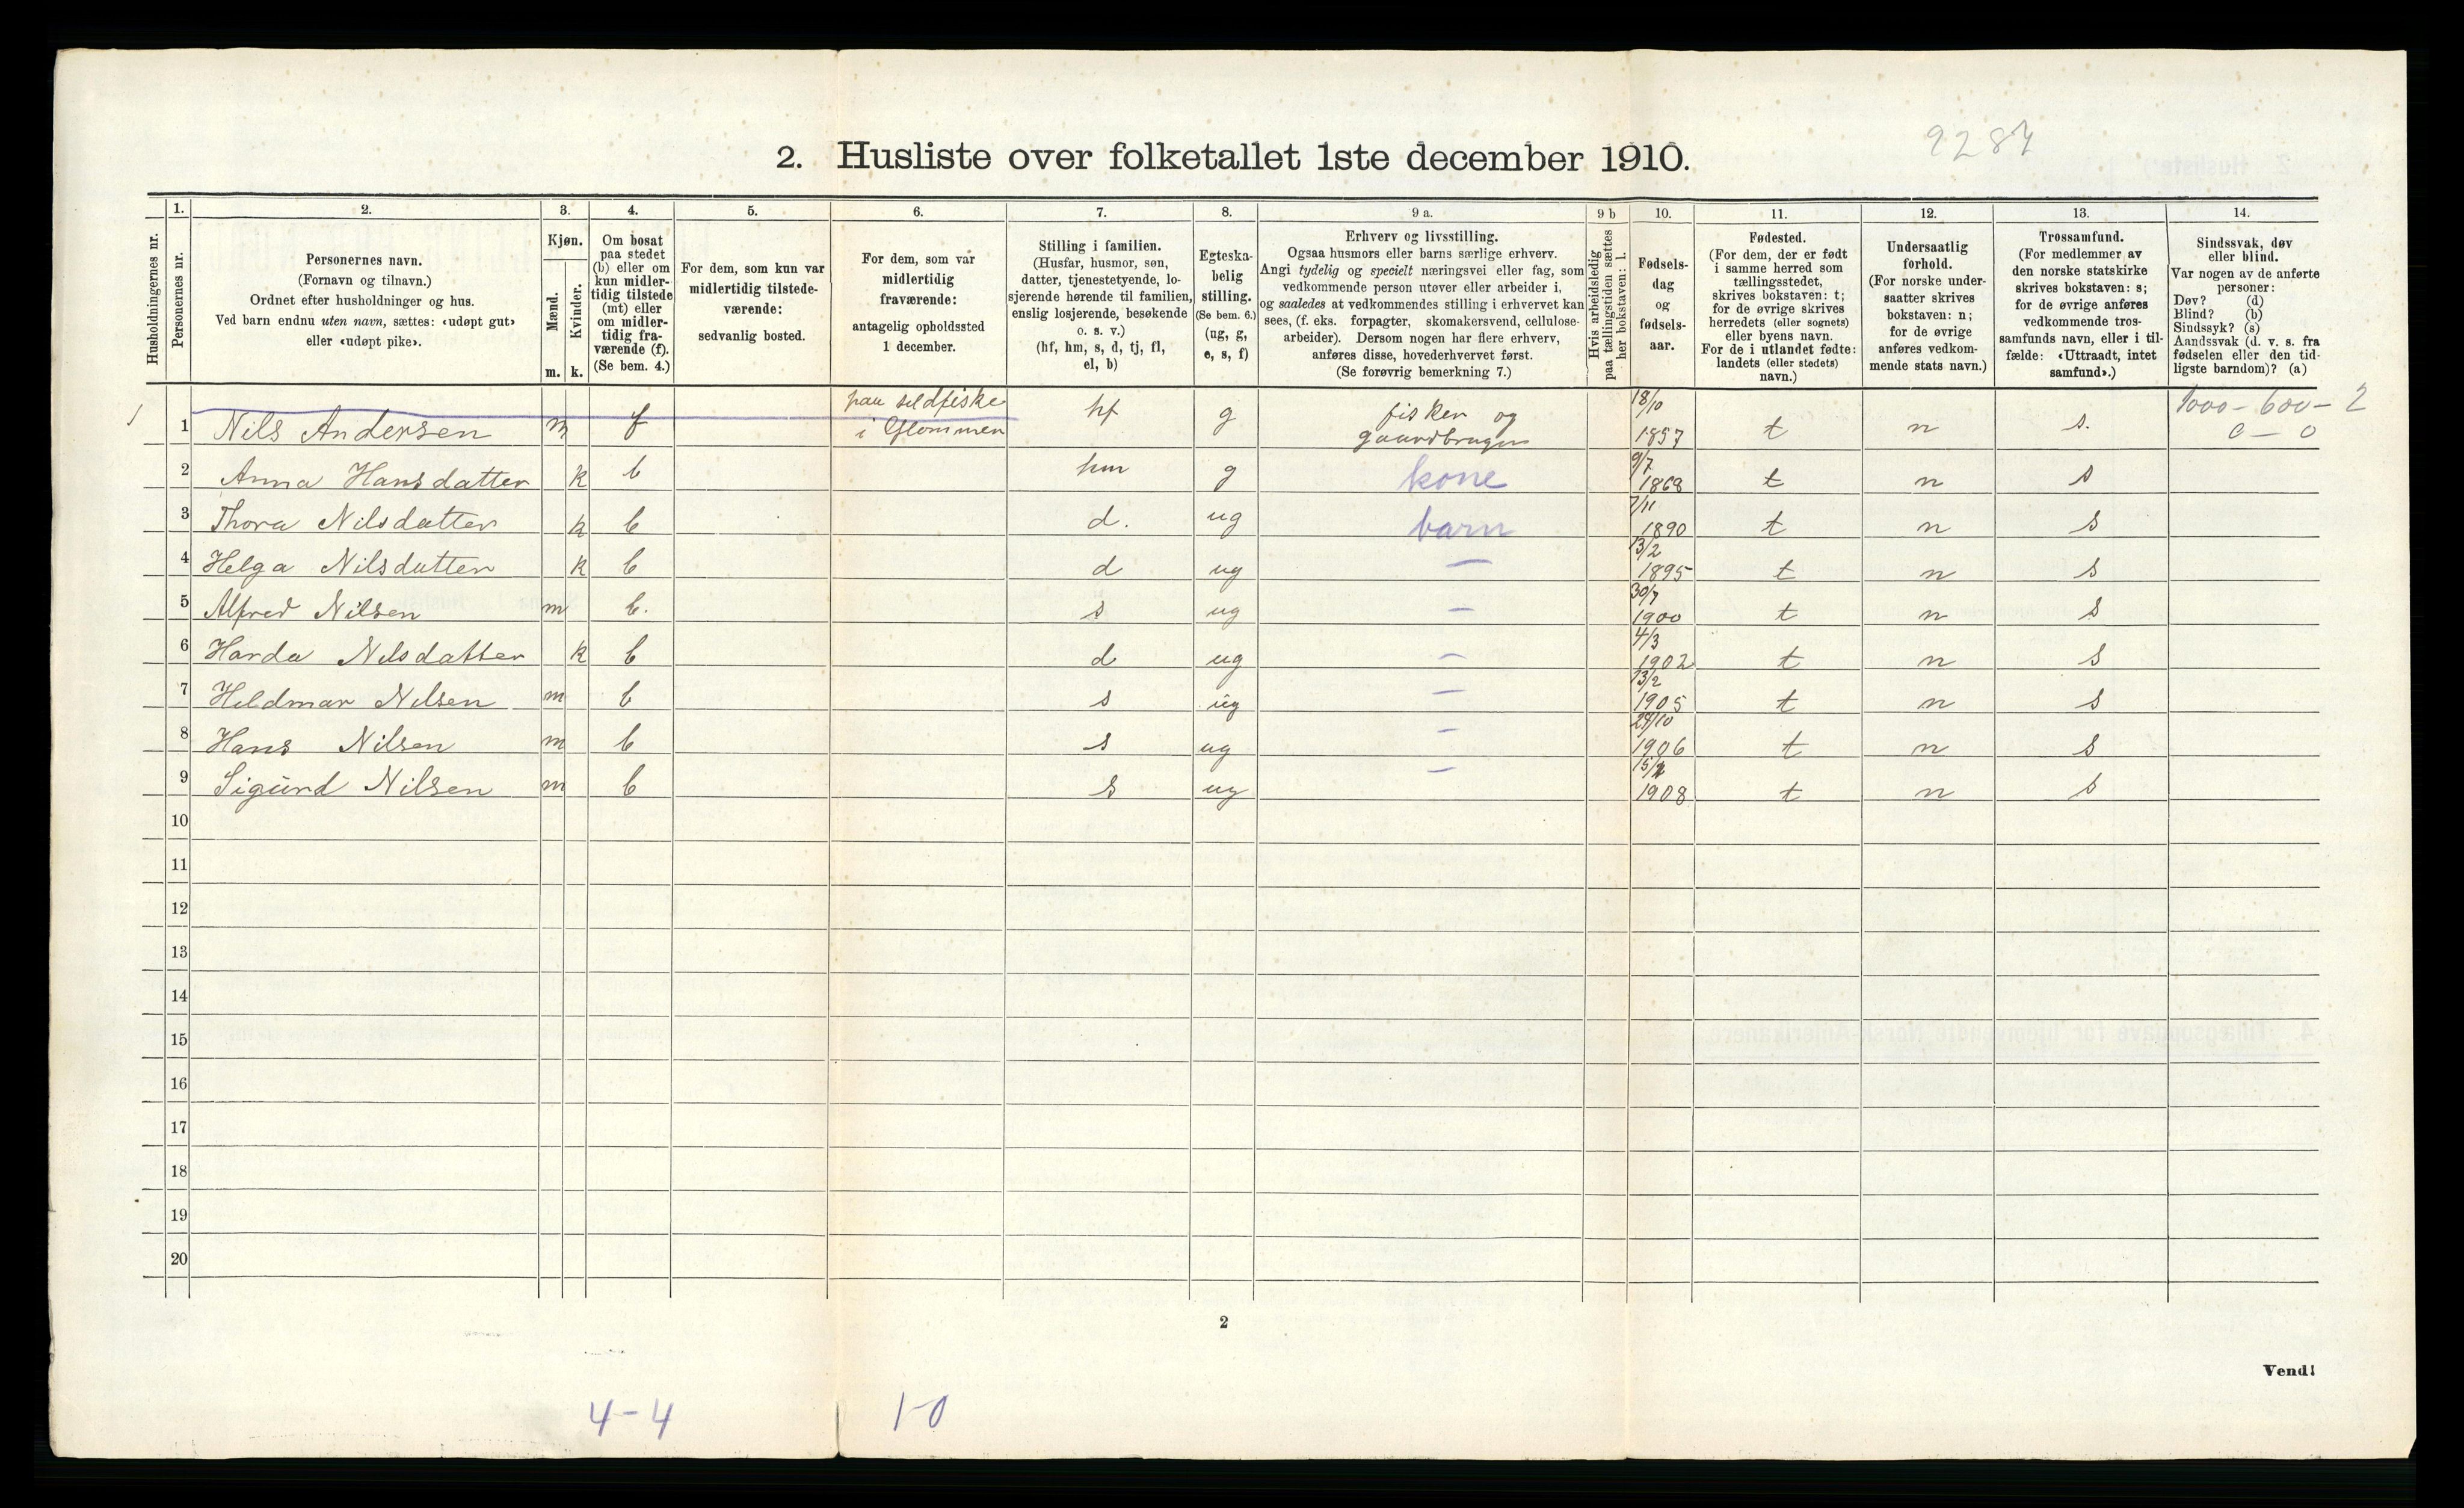 9287
2. Husliste over folketallet 1ste december 1910.
Husholdningernes nr.
1.
Personernes nr.
2.
Personernes navn.
(Fornavn og tilnavn.)
Ordnet efter husholdninger og hus.
Ved barn endnu uten navn, sættes: «udøpt gut»
eller «udøpt pike».
3.
Kjøn.
Mænd.
Kvinder.
m. k.
4.
Om bosat
paa stedet
(b) eller om
kun midler-
tidig tilstede
(mt) eller
om midler-
tidig fra-
værende (f).
(Se bem. 4.)
5.
For dem, som kun var
midlertidig tilstede-
værende:
sedvanlig bosted.
6.
For dem, som var
midlertidig
fraværende:
antagelig opholdssted
1 december.
7.
Stilling i familien.
(Husfar, husmor, søn,
datter, tjenestetyende, lo-
sjerende hørende til familien,
enslig losjerende, besøkende
o. s. v.)
(hf, hm, s, d, tj, fl,
el, b)
8.
Egteska-
belig
stilling.
(Se bem. 6.)
(ug, g,
e, s, f)
9 a.
Erhverv og livsstilling.
Ogsaa husmors eller barns særlige erhverv.
Angi tydelig og specielt næringsvei eller fag, som
vedkommende person utøver eller arbeider i,
og saaledes at vedkommendes stilling i erhvervet kan
sees, (f. eks. forpagter, skomakersvend, cellulose-
arbeider). Dersom nogen har flere erhverv,
anføres disse, hovederhvervet først.
(Se forøvrig bemerkning 7.)
9 b
Hvis arbeidsledig
paa tællingstiden sættes
her bokstaven: l.
10.
Fødsels-
dag
og
fødsels-
aar.
11.
Fødested.
(For dem, der er født
i samme herred som
tællingsstedet,
skrives bokstaven: t;
for de øvrige skrives
herredets (eller sognets)
eller byens navn.
For de i utlandet fødte:
landets (eller stedets)
navn.)
12.
Undersaatlig
forhold.
(For norske under-
saatter skrives
bokstaven: n;
for de øvrige
anføres vedkom-
mende stats navn.)
13.
Trossamfund.
(For medlemmer av
den norske statskirke
skrives bokstaven: s;
for de øvrige anføres
vedkommende tros-
samfunds navn, eller i til-
fælde: «Uttraadt, intet
samfund».)
14.
Sindssvak, døv
eller blind.
Var nogen av de anførte
personer:
Døv? (d)
Blind? (b)
Sindssyk? (s)
Aandssvak (d. v. s. fra
fødselen eller den tid-
ligste barndom)? (a)
1 1 Nils Andersen m f paa sildfiske i Glommen hf g fisker og gaardbruger 18/10 1857 t n s. 1000 - 600 - 2 0 - 0
2 Anna Hansdatter k b hm g kone 9/7 1868 t n s
3 Thora Nilsdatter k b d. ug barn 7/11 1890 t n s
4 Helga Nilsdatter k b d ug — 13/2 1895 t n s
5 Alfred Nilsen m b. s ug — 30/7 1900 t n s
6 Harda Nilsdatter k b d ug — 4/3 1902 t n s
7 Hildmar Nilsen m b s ug — 13/2 1905 t n s
8 Hans Nilsen m b s ug — 29/10 1906 t n s
9 Sigurd Nilsen m b s ug — 1908 t n s
10
11
12
13
14
15
16
17
18
19
20
2
Vend!
4-4 1-0